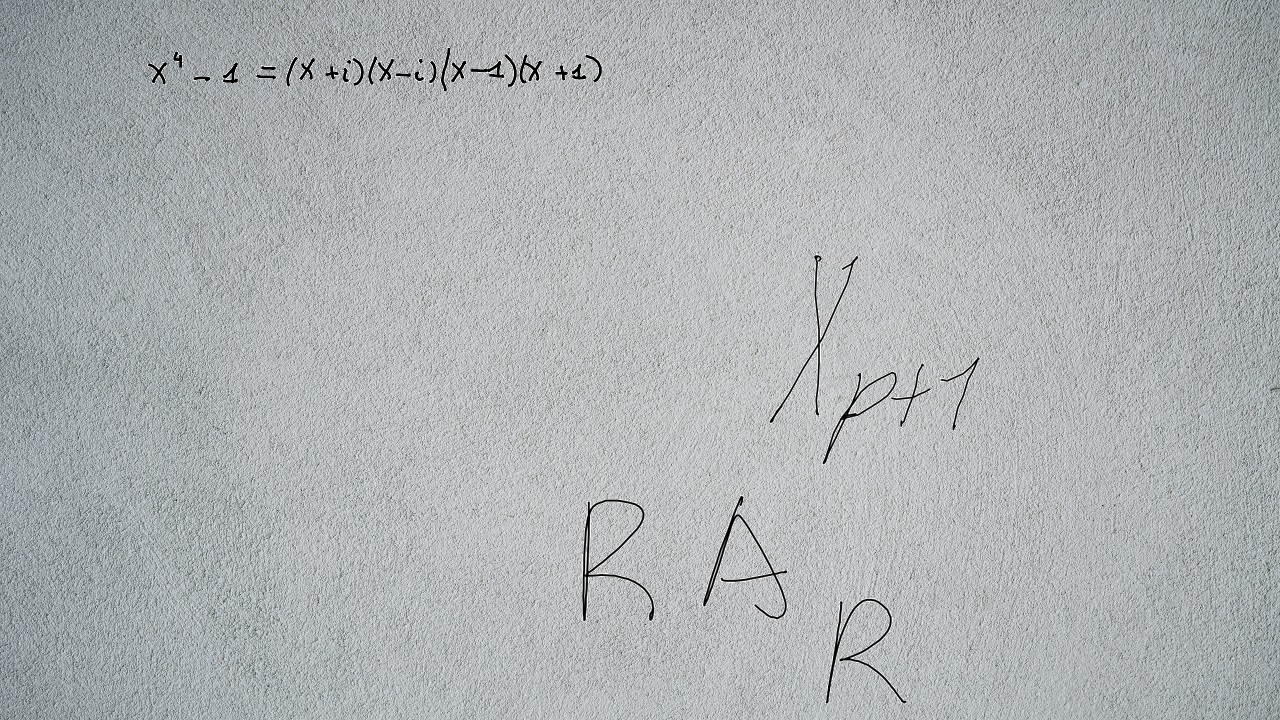 x⁴ - 1 = (x + i)(x - i)(x - 1)(x + 1)
X_{p+1}
R A_R